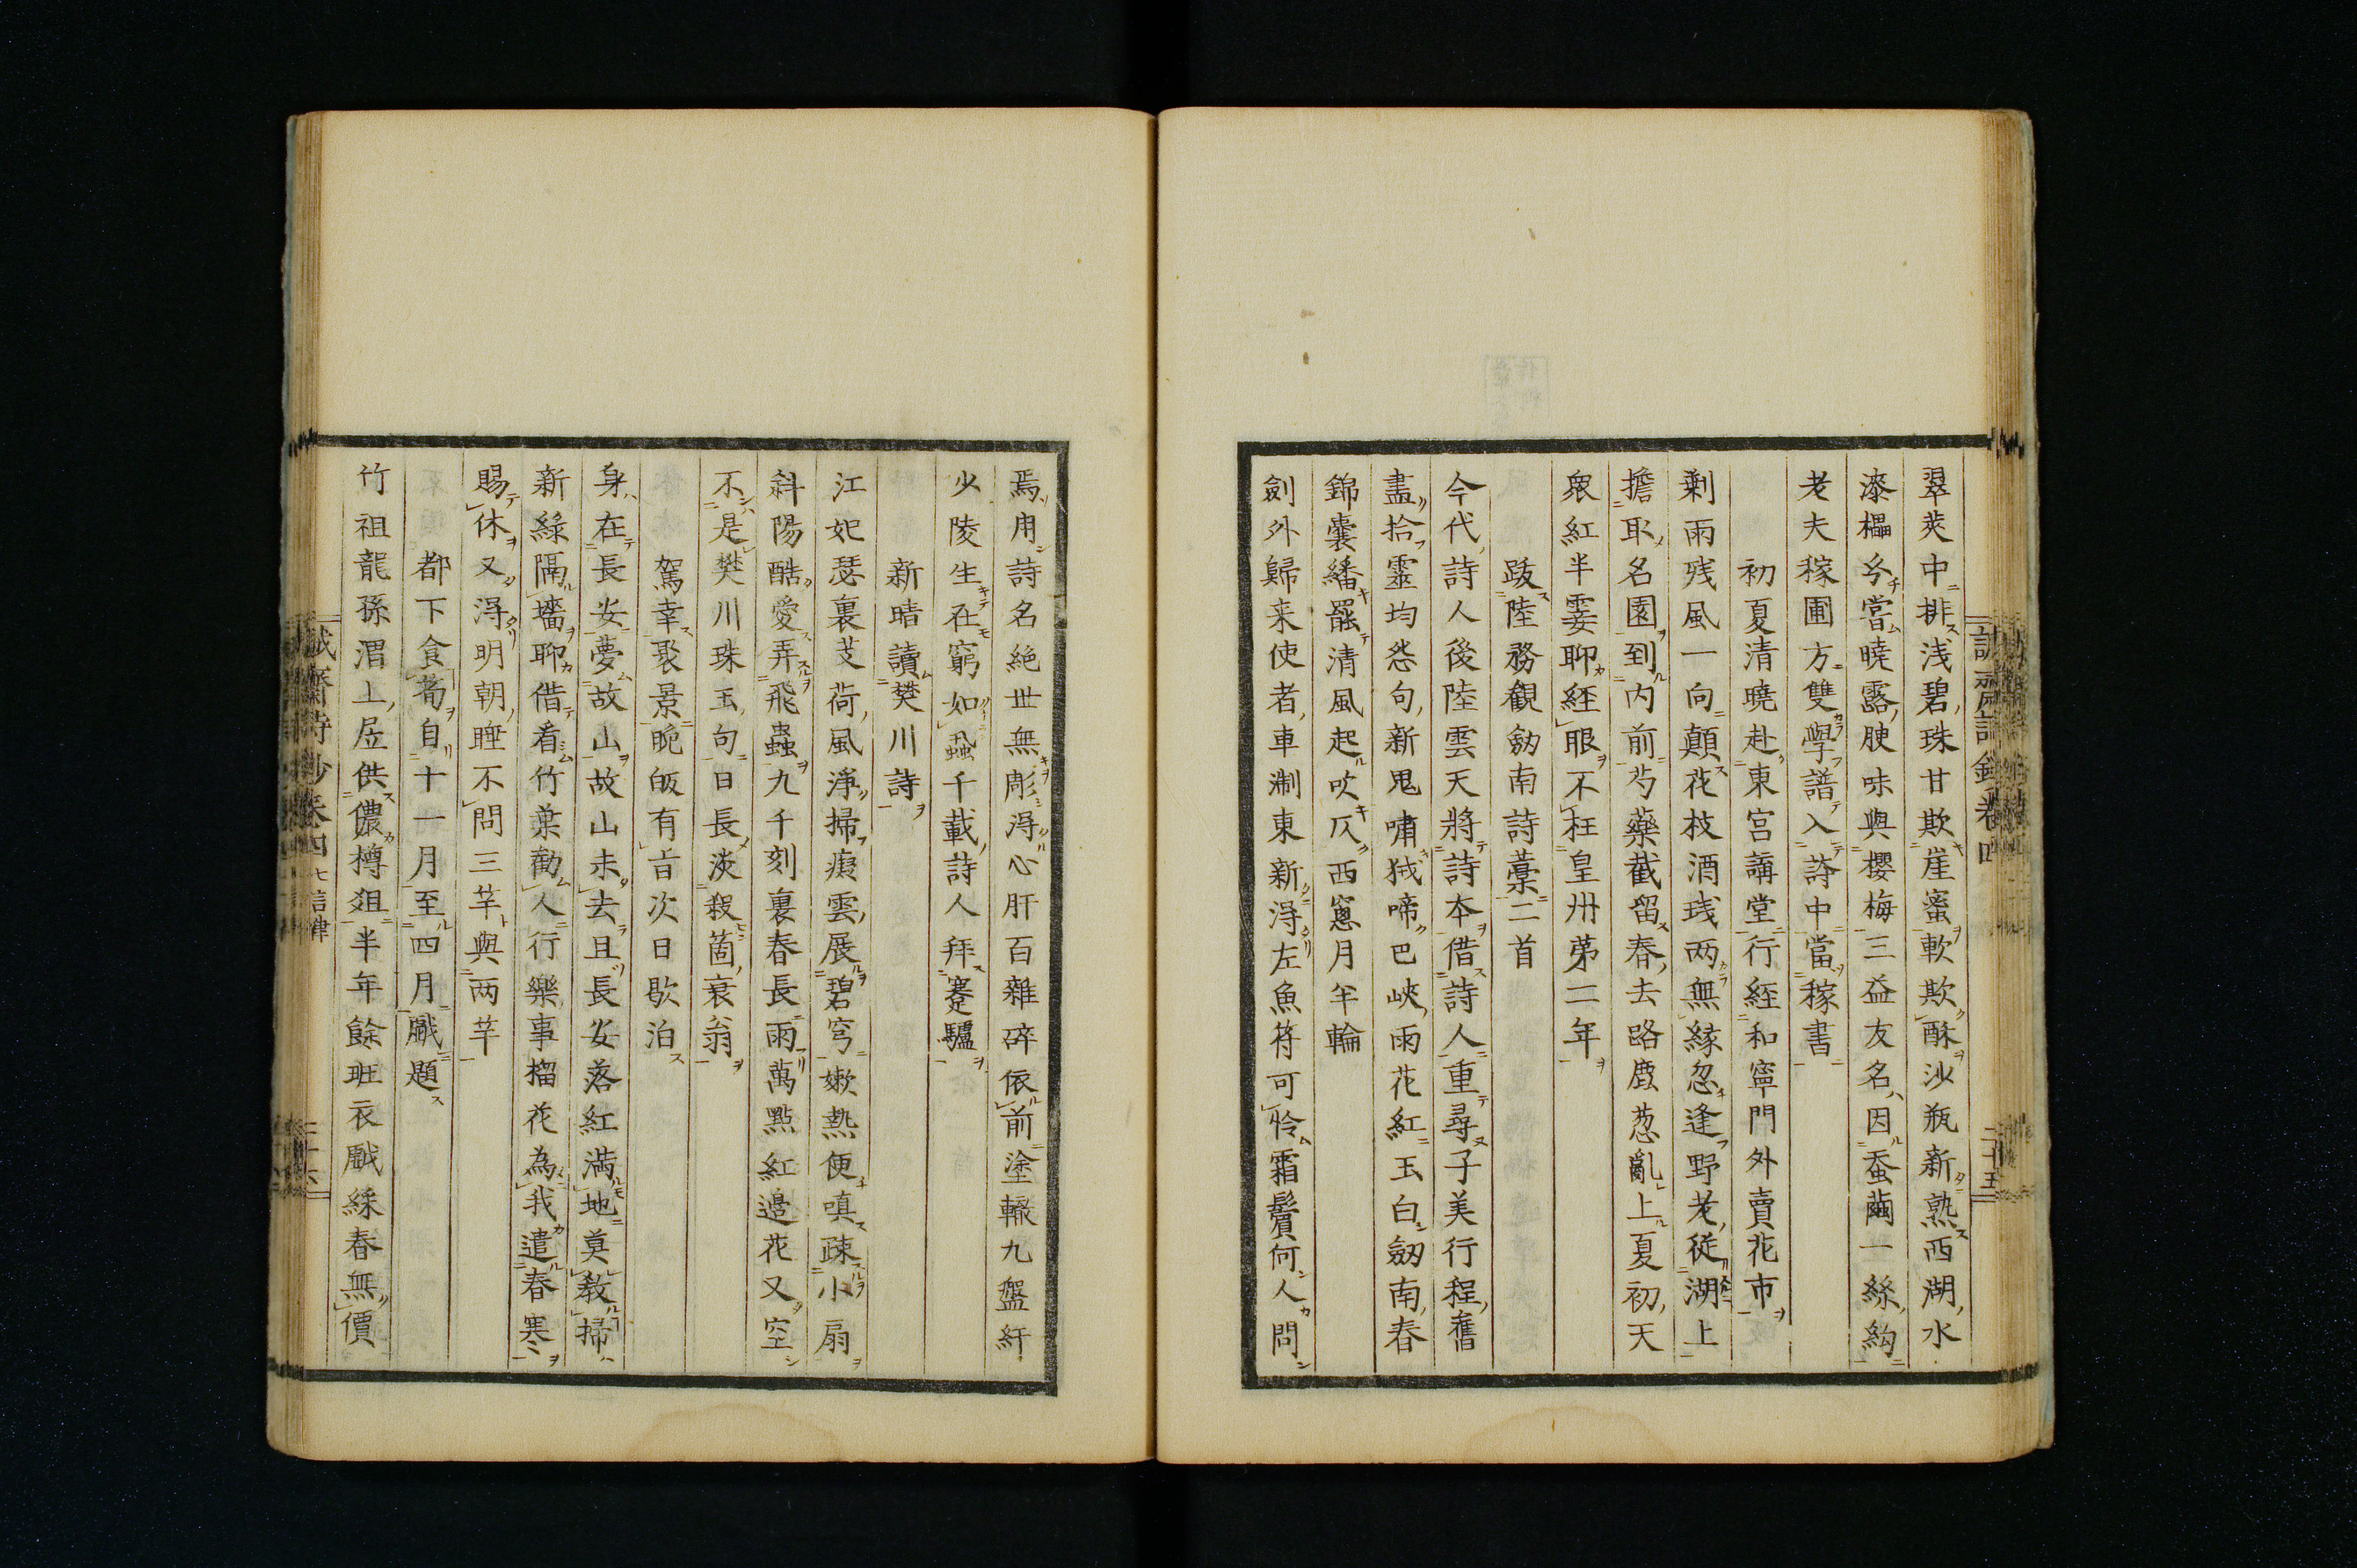 翠莢中排浅碧珠甘欺崖蜜軟欺酥沙瓶新熟西湖水
漆櫑分嘗曉露腴味與櫻梅三益友名因蚕繭一絲絇
老夫稼圃方雙學譜入詩中當稼書
初夏清曉赴東宮講堂行經和寧門外賣花市
剩雨残風一向顛花枝酒琖両無緣忽逢野老從湖上
擔取名園到內前芍藥截留春去路鹿葱亂上夏初天
眾紅半霎聊經眼不枉皇州第二年
跋陸務觀劒南詩藁二首
今代詩人後陸雲天將詩本借詩人重尋子美行程舊
盡拾靈均怨句新鬼嘯狨啼巴峽雨花紅玉白劒南春
錦囊繙罷清風起吹仄西窓月半輪
劍外歸来使者車淛東新得左魚符可怜霜鬢何人問
焉用詩名絕世無彫得心肝百雜碎依前塗轍九盤紆
少陵生在窮如蝨千載詩人拜蹇驢
新晴讀樊川詩
江妃瑟裏芰荷風淨掃痕雲展碧穹嫩熱便嗔踈小扇
斜陽酷愛弄飛蟲九千刻裏春長雨萬點紅邊花又空
不是樊川珠玉句日長淡殺箇衰翁
駕幸聚景晚皈有旨次日歇泊
身在長安夢故山故山未去且長安落紅滿地莫教掃
新綠隔墻聊借看竹葉勸人行樂事榴花為我遣春寒
賜休又得明朝睡不問三竿與両竿
都下食筍自十一月至四月戲題
竹祖龍孫渭上居供儂樽爼半年餘班衣戲綵春無價
誠齋詩鈔卷四
二十六